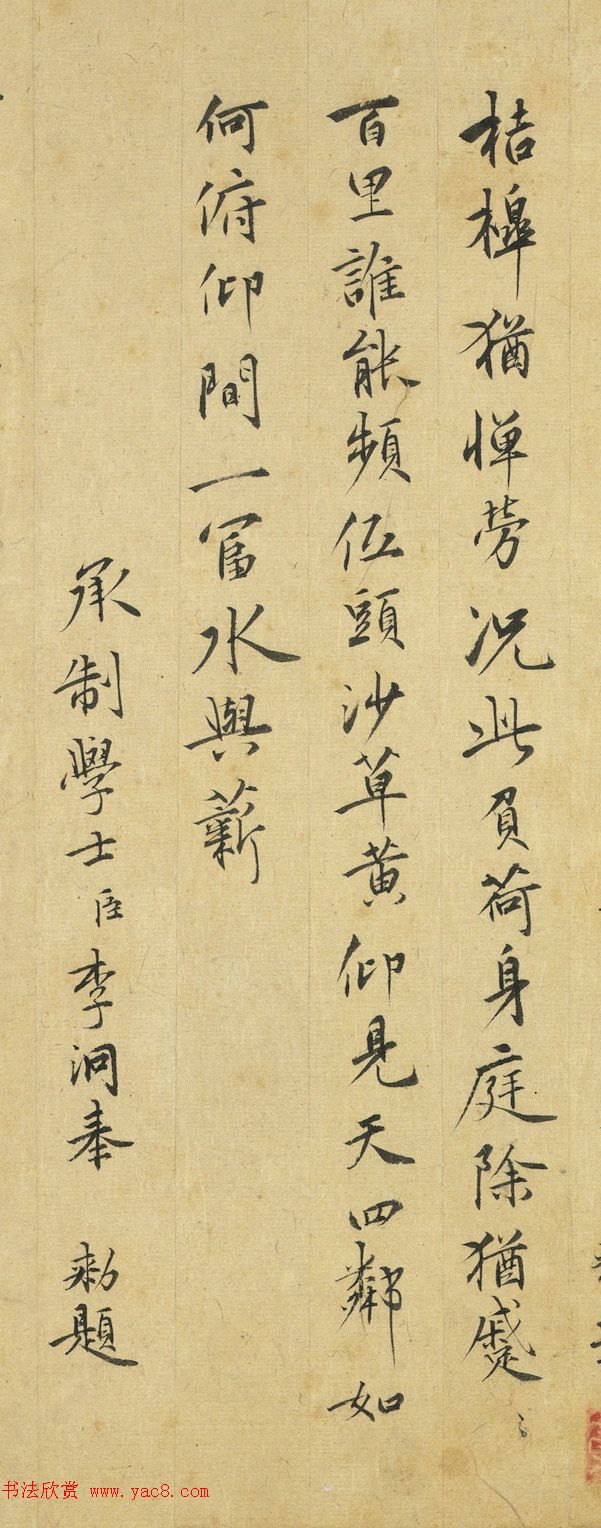 桔橰猶憚勞況此負荷身庭除猶蹙〻
百里誰能頻低頭沙草黃仰見天四鄰如
何俯仰間一富水與薪
承制學士臣李泂奉 勅題
书法欣赏 www.yac8.com